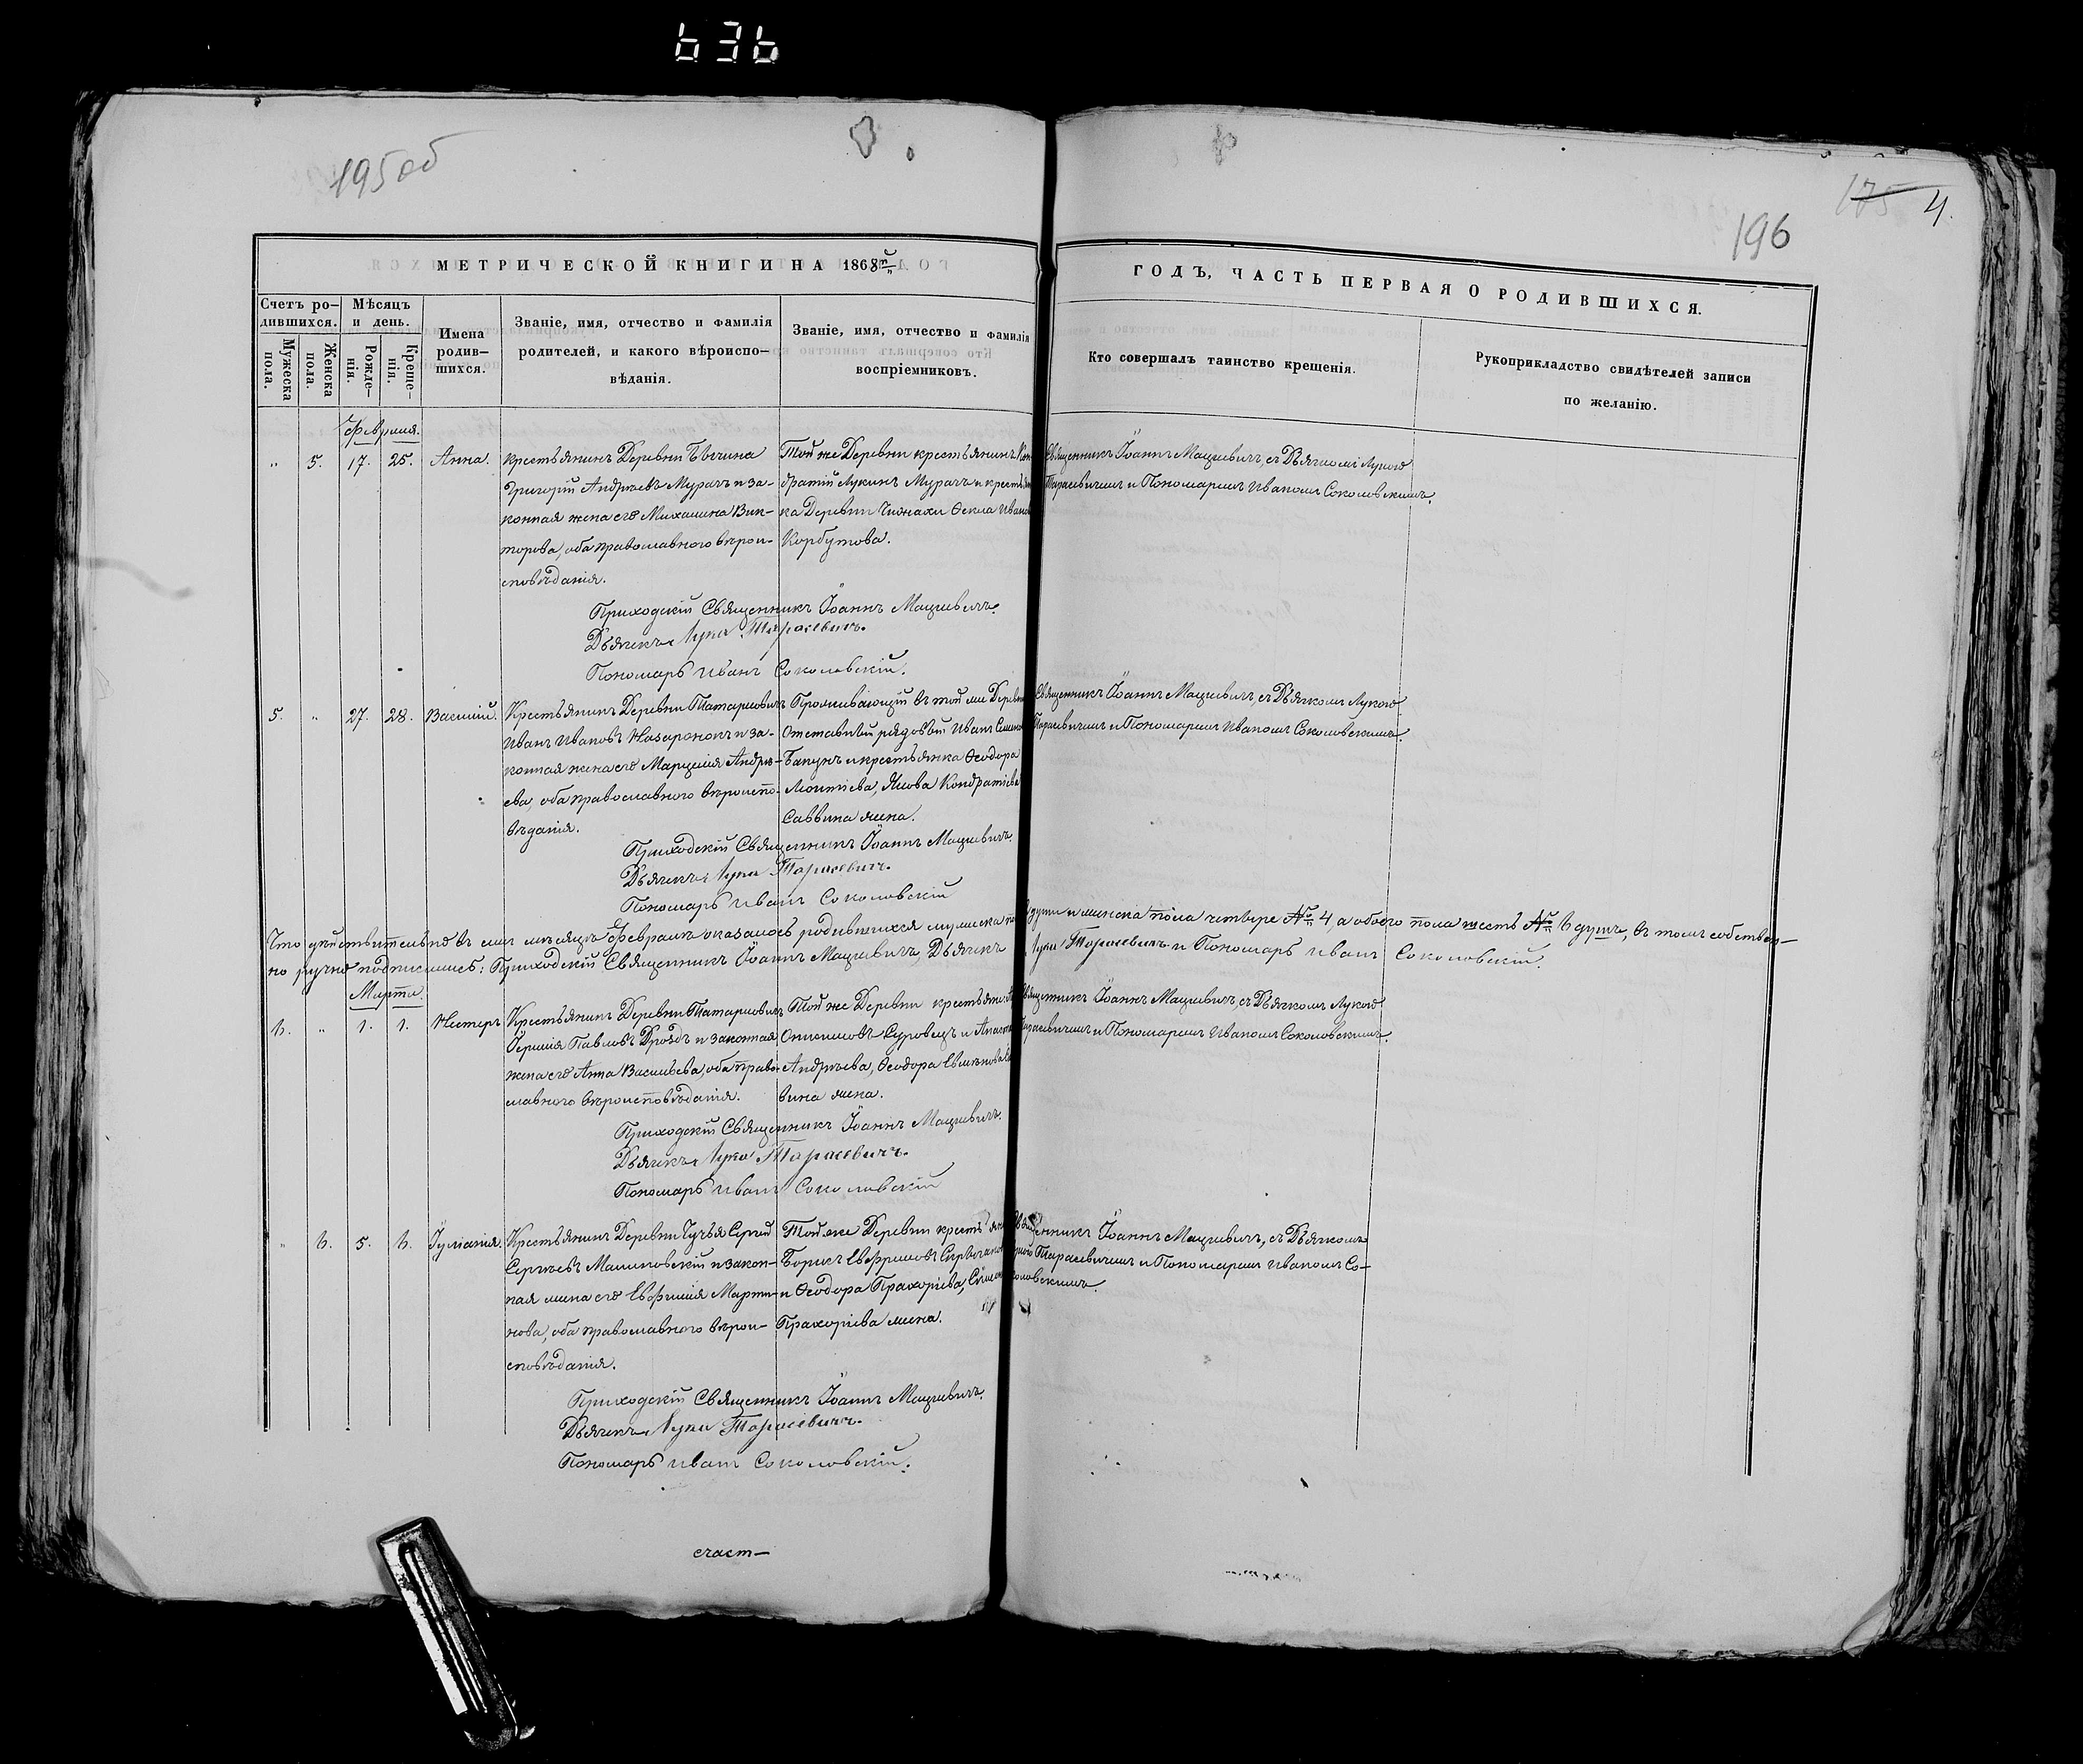 636
195 об
175 4.
196
МЕТРИЧЕСКОЙ КНИГИ НА 1868й
ГОДЪ, ЧАСТЬ ПЕРВАЯ О РОДИВШИХСЯ.
Счетъ ро-
дившихся.
Мужеска
пола.
Женска
пола.
Мѣсяцъ
и день.
Рожде-
нія.
Креще-
нія.
Имена
родив-
шихся.
Званіе, имя, отчество и фамилія
родителей, и какого вѣроиспо-
вѣданія.
Званіе, имя, отчество и фамилія
воспріемниковъ.
Кто совершалъ таинство крещенія.
Рукоприкладство свидѣтелей записи
по желанію.
Февраля.
" 5. 17. 25. Анна.
Крестьянинъ Деревни
Григорій Андреевъ Мурачъ и за-
конная жена его Михалина Вик-
торова, оба православнаго вѣрои-
сповѣданія.
Той же Деревни крестьянинъ Кон-
дратій Лукинъ Мурачъ и крестьян
ка Деревни Чонахи Ѳекла Иванова
Корбутова.
Священникъ Іоаннъ Мацкевичъ, съ Дьячкомъ Лукою
Тарасевичемъ и Пономаремъ Иваномъ Соколовскимъ.
Приходскій Священникъ Іоаннъ Мацкевичъ.
Дьячекъ Лука Тарасевичъ.
Пономарь Иванъ Соколовскій.
5. " 27. 28. Василій.
Крестьянинъ Деревни Татарковичъ
Иванъ Ивановъ Назаронокъ и за-
конная жена его Марцелія Андре-
ева, оба православнаго вѣроиспо-
вѣданія.
Проживающій въ той же Деревни
Отставный рядовый Иванъ Семеновъ
Бапунъ и крестьянка Ѳеодора
Леонтіева, Якова Кондратіева
Саввина жена.
Священникъ Іоаннъ Мацкевичъ, съ Дьячкомъ Лукою
Тарасевичемъ и Пономаремъ Иваномъ Соколовскимъ.
Приходскій Священникъ Іоаннъ Мацкевичъ.
Дьячекъ Лука Тарасевичъ.
Пономарь Иванъ Соколовскій
Что дѣйствительно въ семъ мѣсяцѣ Февралѣ оказалось родившихся мужеска души и женска пола четыре № 4, а обоего пола шесть № 6 душъ, въ томъ собствен-
но ручно подписались: Приходскій Священникъ Іоаннъ Мацкевичъ, Дьячекъ Лука Тарасевичъ и Пономарь Иванъ Соколовскій.
Марта.
6. " 1. 1. Несторъ
Крестьянинъ Деревни Татарковичъ
Павловъ Дроздъ и законная
жена его Анна Васильева, оба право-
славнаго вѣроисповѣданія.
Той же Деревни крестьяне
Онисимовъ Суровецъ и
Андреева, Ѳеодора
вина жена.
Священникъ Іоаннъ Мацкевичъ, съ Дьячкомъ Лукою
Тарасевичемъ и Пономаремъ Иваномъ Соколовскимъ.
Приходскій Священникъ Іоаннъ Мацкевичъ.
Дьячекъ Лука Тарасевичъ.
Пономарь Иванъ Соколовскій
" 6. 5. 6. Іуліанія.
Крестьянинъ Деревни Сергій
Сергѣевъ Малиновскій и закон-
ная жена его Евфимія Марти-
нова, оба православнаго вѣрои-
сповѣданія.
Той же Деревни крестьяне
Борисъ
и Ѳеодора Прахоріева,
Прахоріева жена.
Священникъ Іоаннъ Мацкевичъ, съ Дьячкомъ
Лукою Тарасевичемъ и Пономаремъ Иваномъ Со-
коловскимъ.
Приходскій Священникъ Іоаннъ Мацкевичъ.
Дьячекъ Лука Тарасевичъ.
Пономарь Иванъ Соколовскій.
счаст-